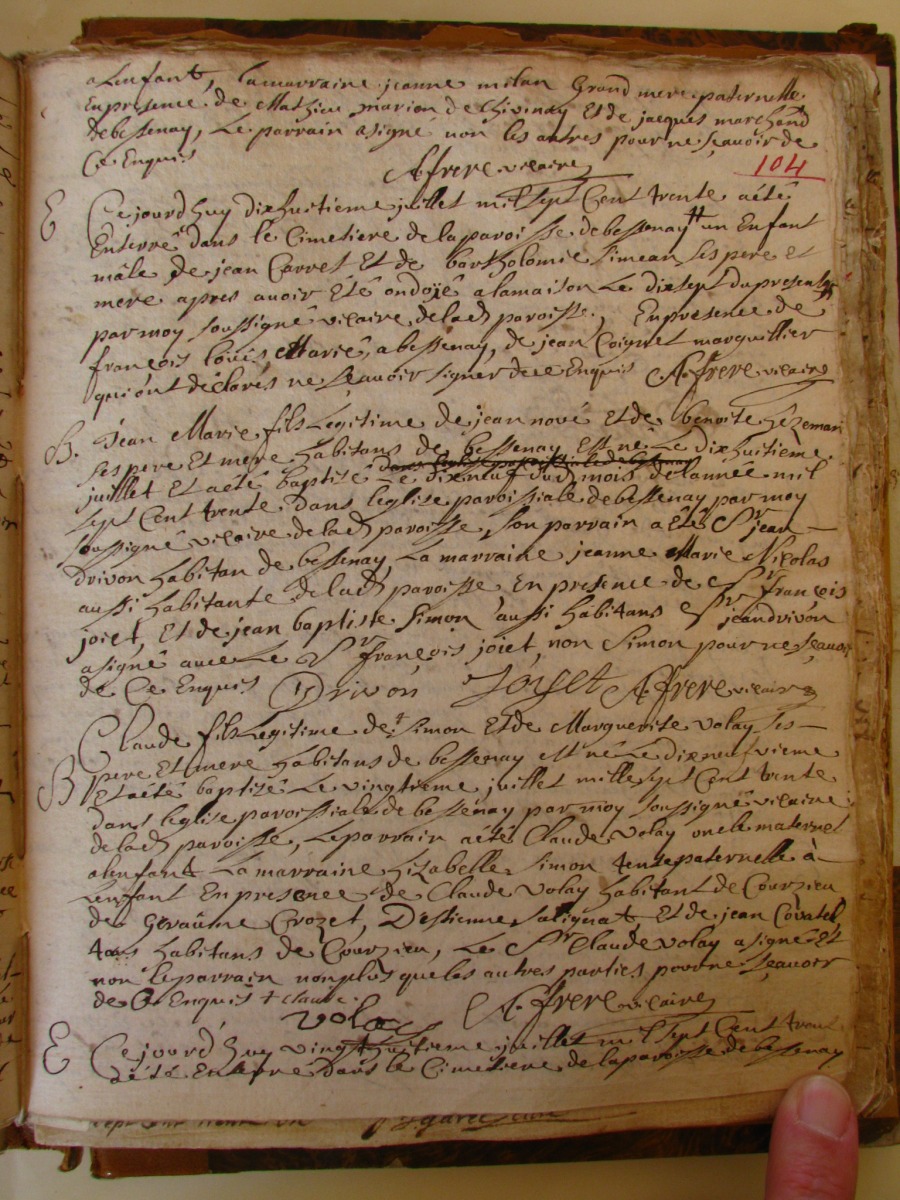 a Lenfant, la marraine jeanne milan Grand mere paternelle
En presence de Mathieu marion de Chivinay Et de jacques marchand
de bessenay, Le parrain a signé non les autres pour ne sçauoir de
Ce Enquis
A. frere vicaire
104
E Cejourdhuy dixhuitieme juillet mil sept Cent trente a été
Enterré dans le Cimetiere de la paroisse de bessenay un Enfant
mâle de jean Carret Et de bartholomie simean ses pere et
mere apres auoir Eté ondoïé a la maison Le dixsept du present
par moy soussigné vicaire de lad paroisse, En presence de
françois loüis Marié, a bessenay, de jean Coignet marguillier
qui ont déclarés ne sçauoir signer de ce Enquis A. frere vicaire
B. Jean Marie fils Legitime de jean nové Et de benoite
ses pere Et mere habitans de bessenay Est né Le dixhuitième
juillet Et a eté baptisé Le dixneuf dud mois de l'année mil
sept Cent trente dans l'eglise paroissiale de bessenay par moy
soussigné vicaire de lad paroisse, son parrain a été Sr jean
drivon habitan de bessenay, La marraine jeanne Marie Nicolas
aussi habitante de lad paroisse En presence de Sr françois
joiet, Et de jean baptiste Simon aussi habitans Sr jean drivon
a signé avec Le Sr françois joiet, non Simon pour ne sçauoir
de Ce Enquis Drivon Joyet A. frere vicaire
Claude fils Legitime de simon Et de Marguerite volay ses
B pere Et mere habitans de bessenay est né Le dixneufvieme
Et a eté baptisé Le vingtieme juillet mille sept Cent trente
dans l'eglise paroissiale de bessenay par moy soussigné vicaire
de lad paroisse, Le parrain a été Claude volay oncle maternel
a lenfant La marraine Izabelle Simon tente paternelle à
Lenfant En presence de Claude volay habitant de Courzieu
de Geraûme Crozet, D'estienne salignat Et de jean Covatel
tous habitans de Courzieu, Le Sr Claude volay a signé Et
non le parrain non plus que les autres parties pour ne sçauoir
de Ce Enquis + claude
volay A. frere vicaire
E Cejourd'huy vingthuitieme juillet mil sept Cent trente
a été Enterré dans le Cimetiere de la paroisse de bessenay